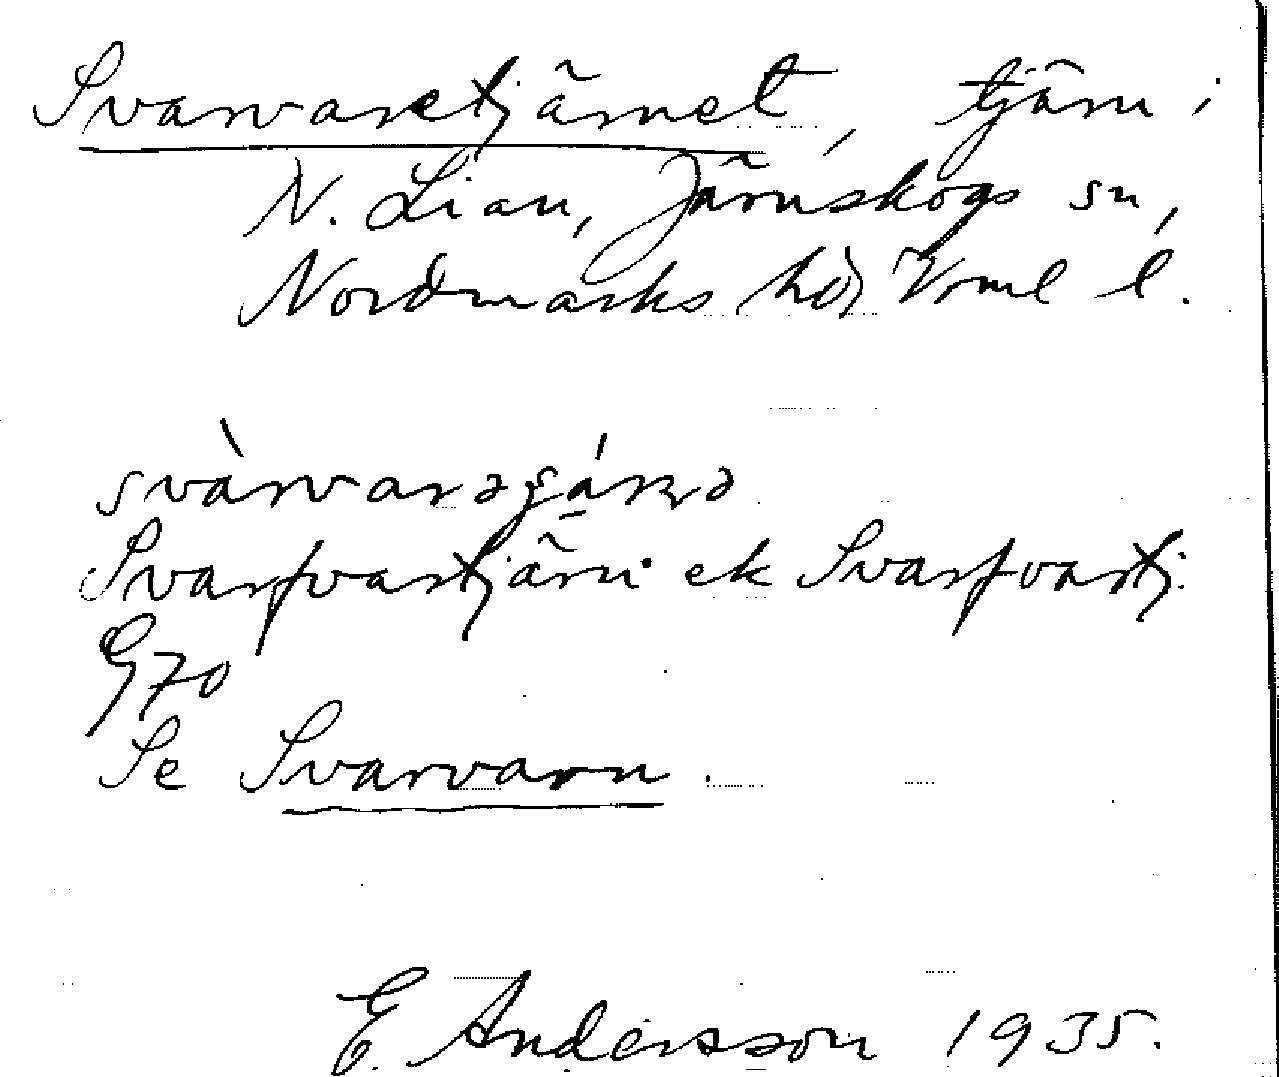 Svarvaretjärnet, tjärn i
N. Lian, Järnskogs sn,
Nordmarks hd, Vrml l.
svàrvarə
Svarfvartjärn ek Svarfvartj.
G70
Se Svarvarn.
E Andersson 1935.